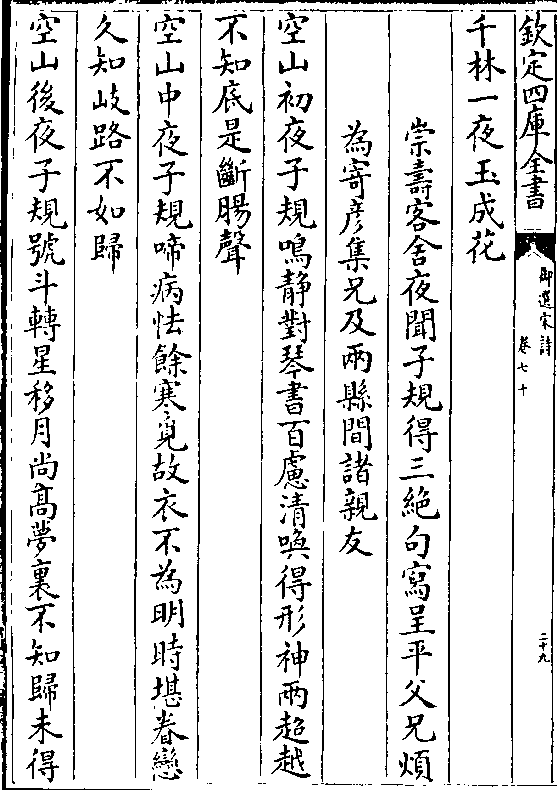 欽定四庫全書
御選宋詩
卷七十
二十九
千林一夜玉成花
崇壽客舍夜聞子規得三絶句寫呈平父兄煩
為寄彦集兄及兩縣間諸親友
空山初夜子規鳴静對琴書百慮清喚得形神兩超越
不知底是斷腸聲
空山中夜子規啼病怯餘寒覓故衣不為明時堪眷戀
久知岐路不如歸
空山後夜子規號斗轉星移月尚髙夢裏不知歸未得